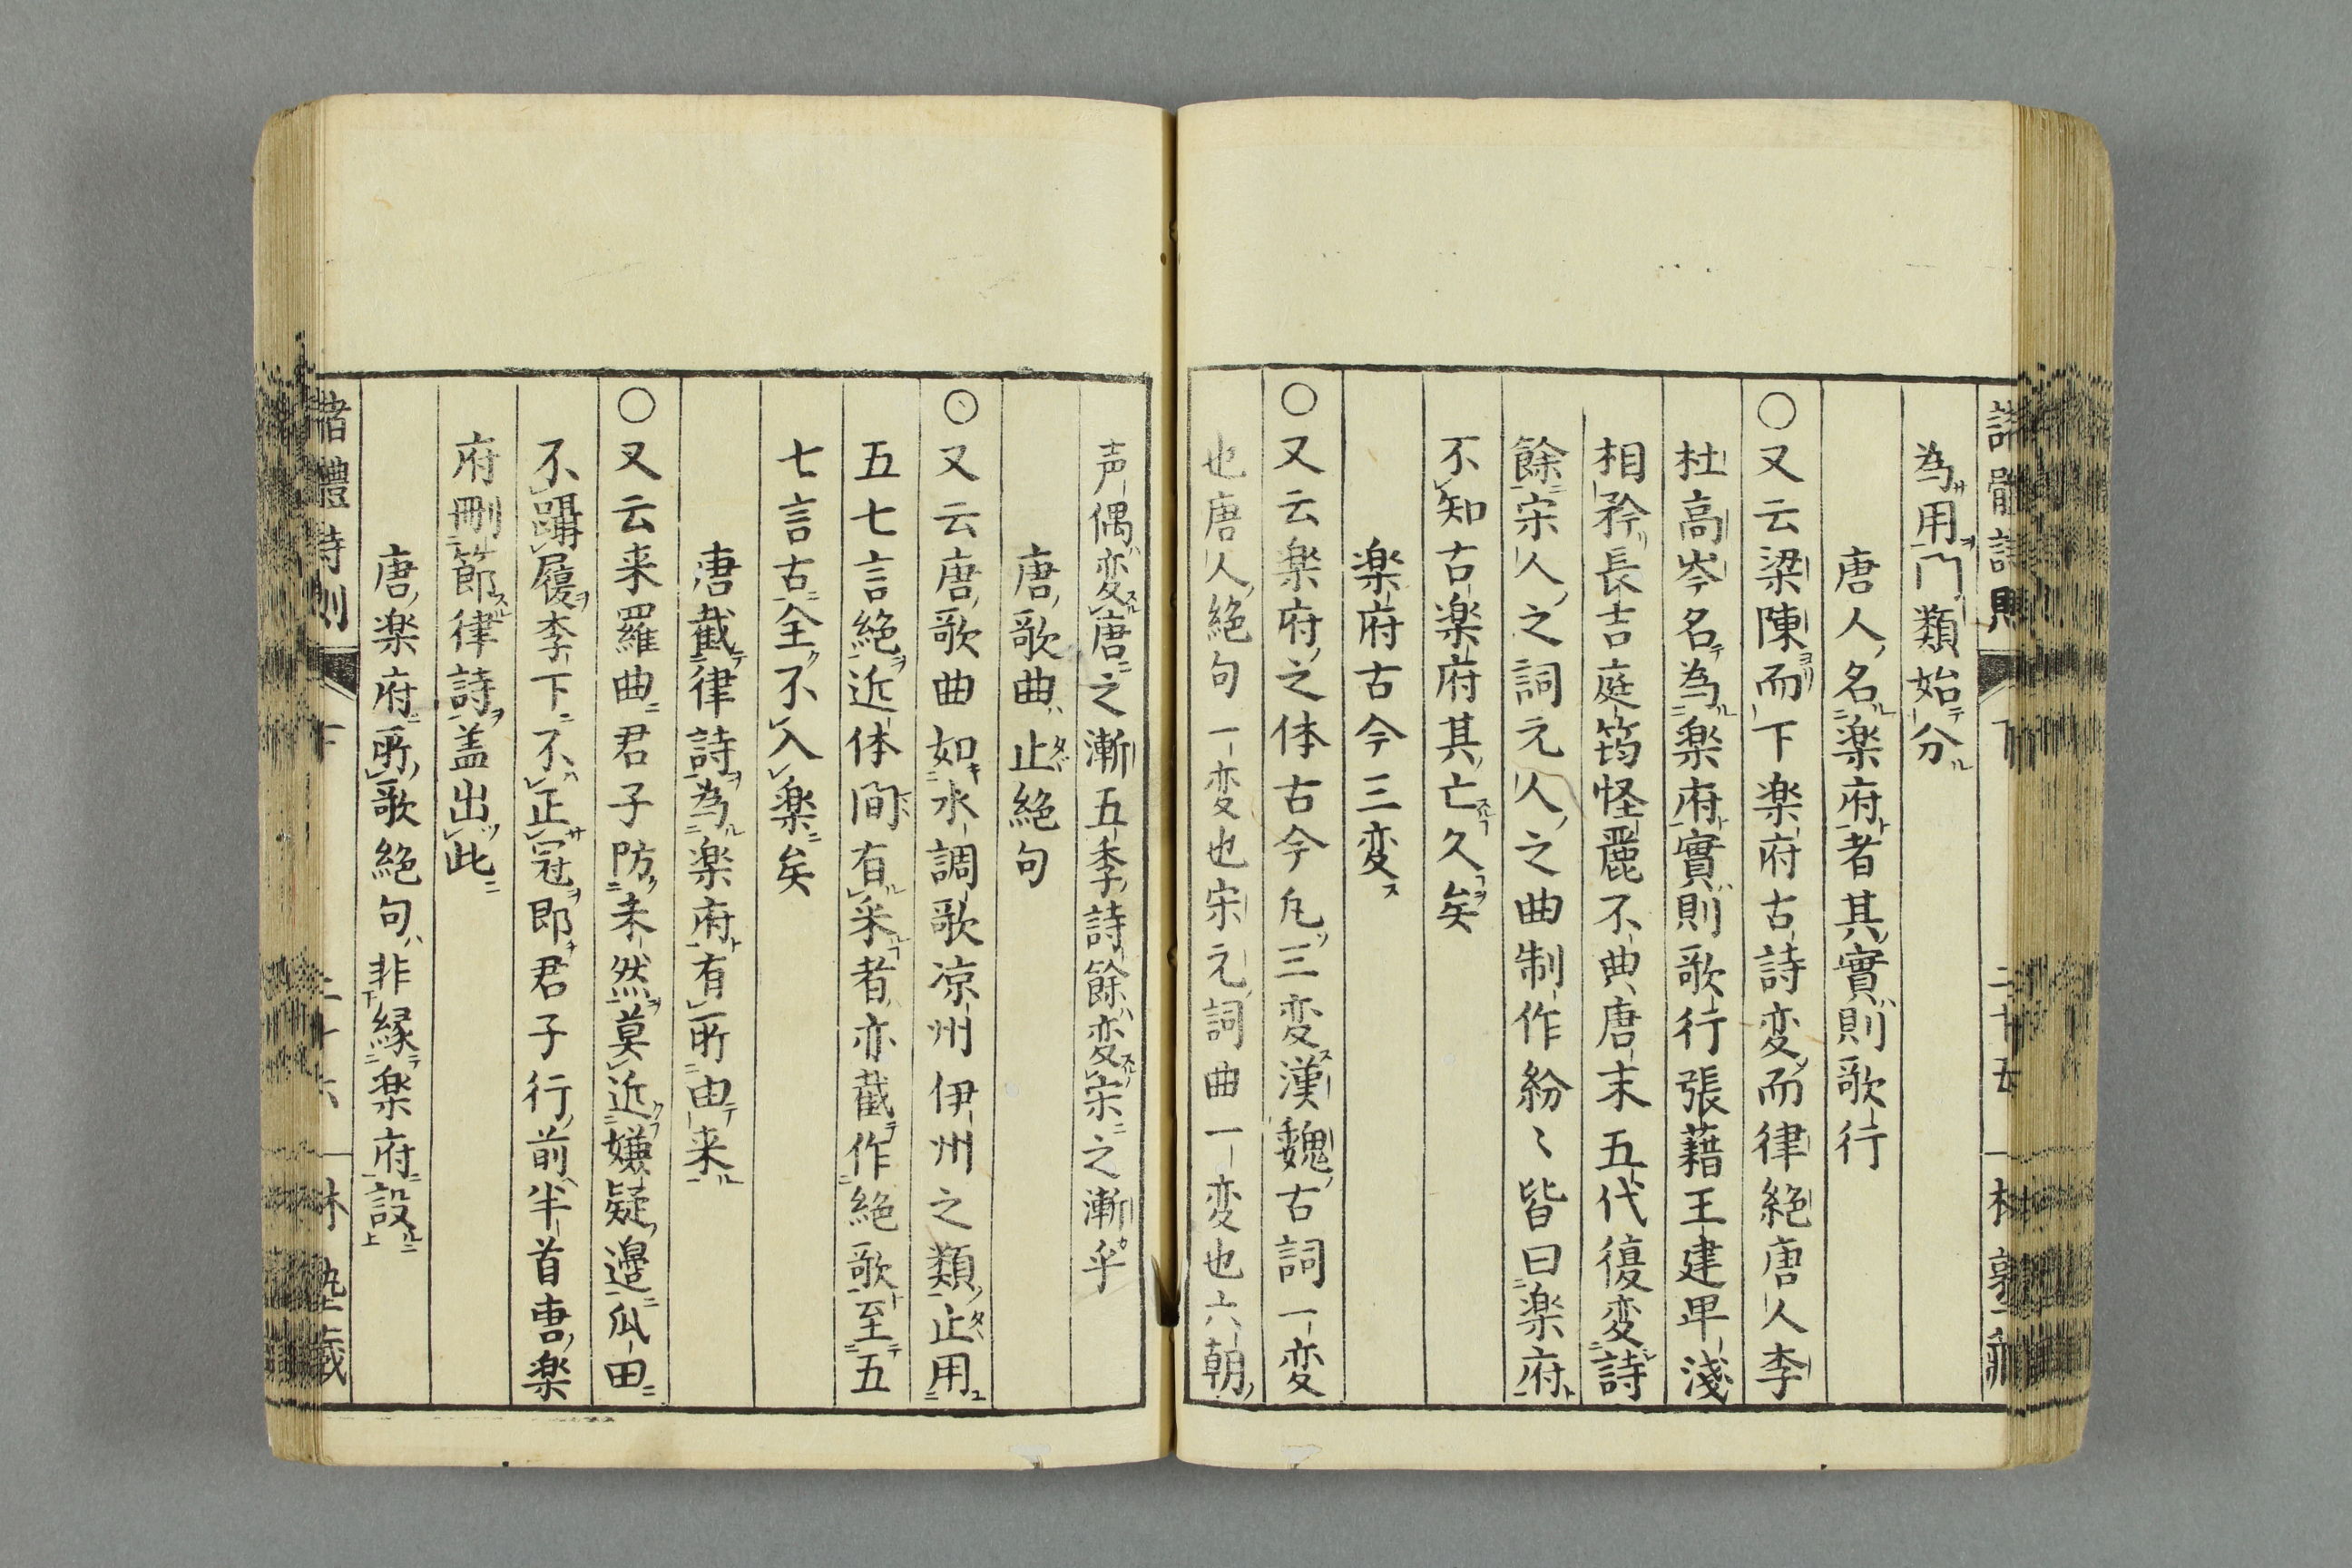 為用門類始分
唐人名楽府者其實則歌行
○又云梁陳而下楽府古詩変而律絶唐人李
杜高岑名為楽府實則歌行張藉王建卑淺
相矜長吉庭筠怪麗不典唐末五代復変詩
餘宋人之詞元人之曲制作紛〻皆曰楽府
不知古楽府其亡久矣
楽府古今三変
○又云楽府之体古今凡三変漢魏古詞一変
也唐人絶句一変也宋元詞曲一変也六朝
声偶変唐之漸五季詩餘変宋之漸乎
唐歌曲止絶句
○又云唐歌曲如水調歌凉州伊州之類止用
五七言絶近体間有采者亦截作絶歌至五
七言古全不入楽矣
唐截律詩為楽府有所由来
○又云来羅曲君子防未然莫近嫌疑邉瓜田
不躡履李下不正冠即君子行前半首唐楽
府刪節律詩盖出此
唐楽府所歌絶句非縁楽府設
諸體詩則 下 二十六